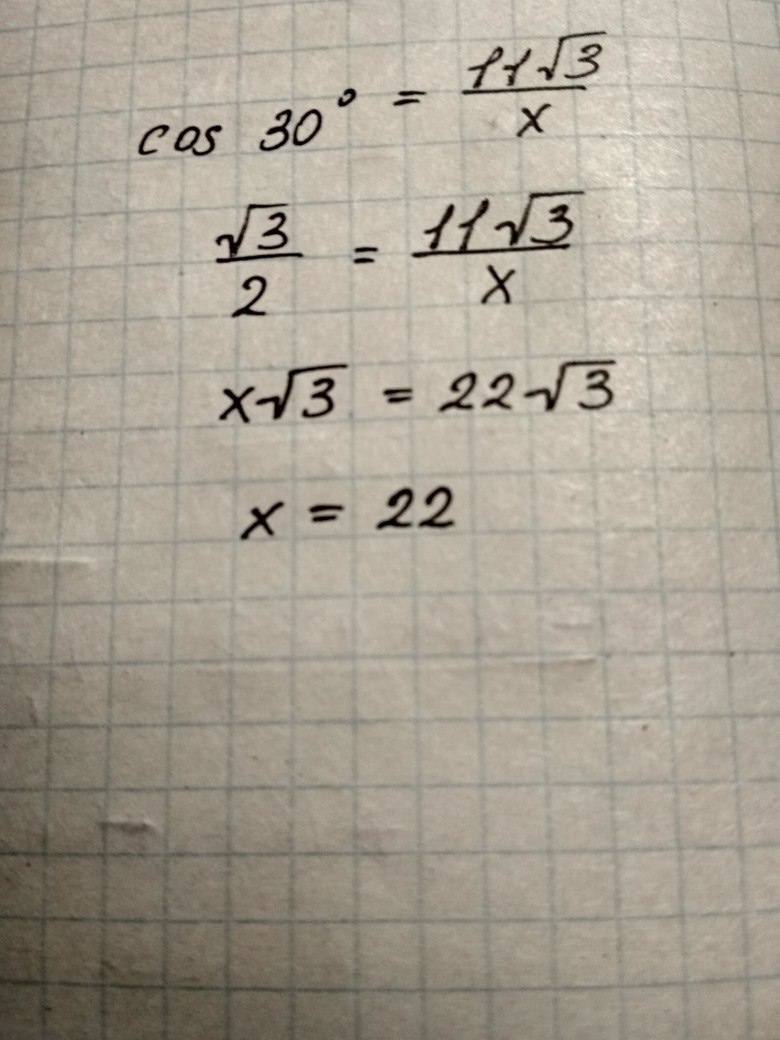 cos 30° = 11√3/x
√3/2 = 11√3/x
x√3 = 22√3
x = 22